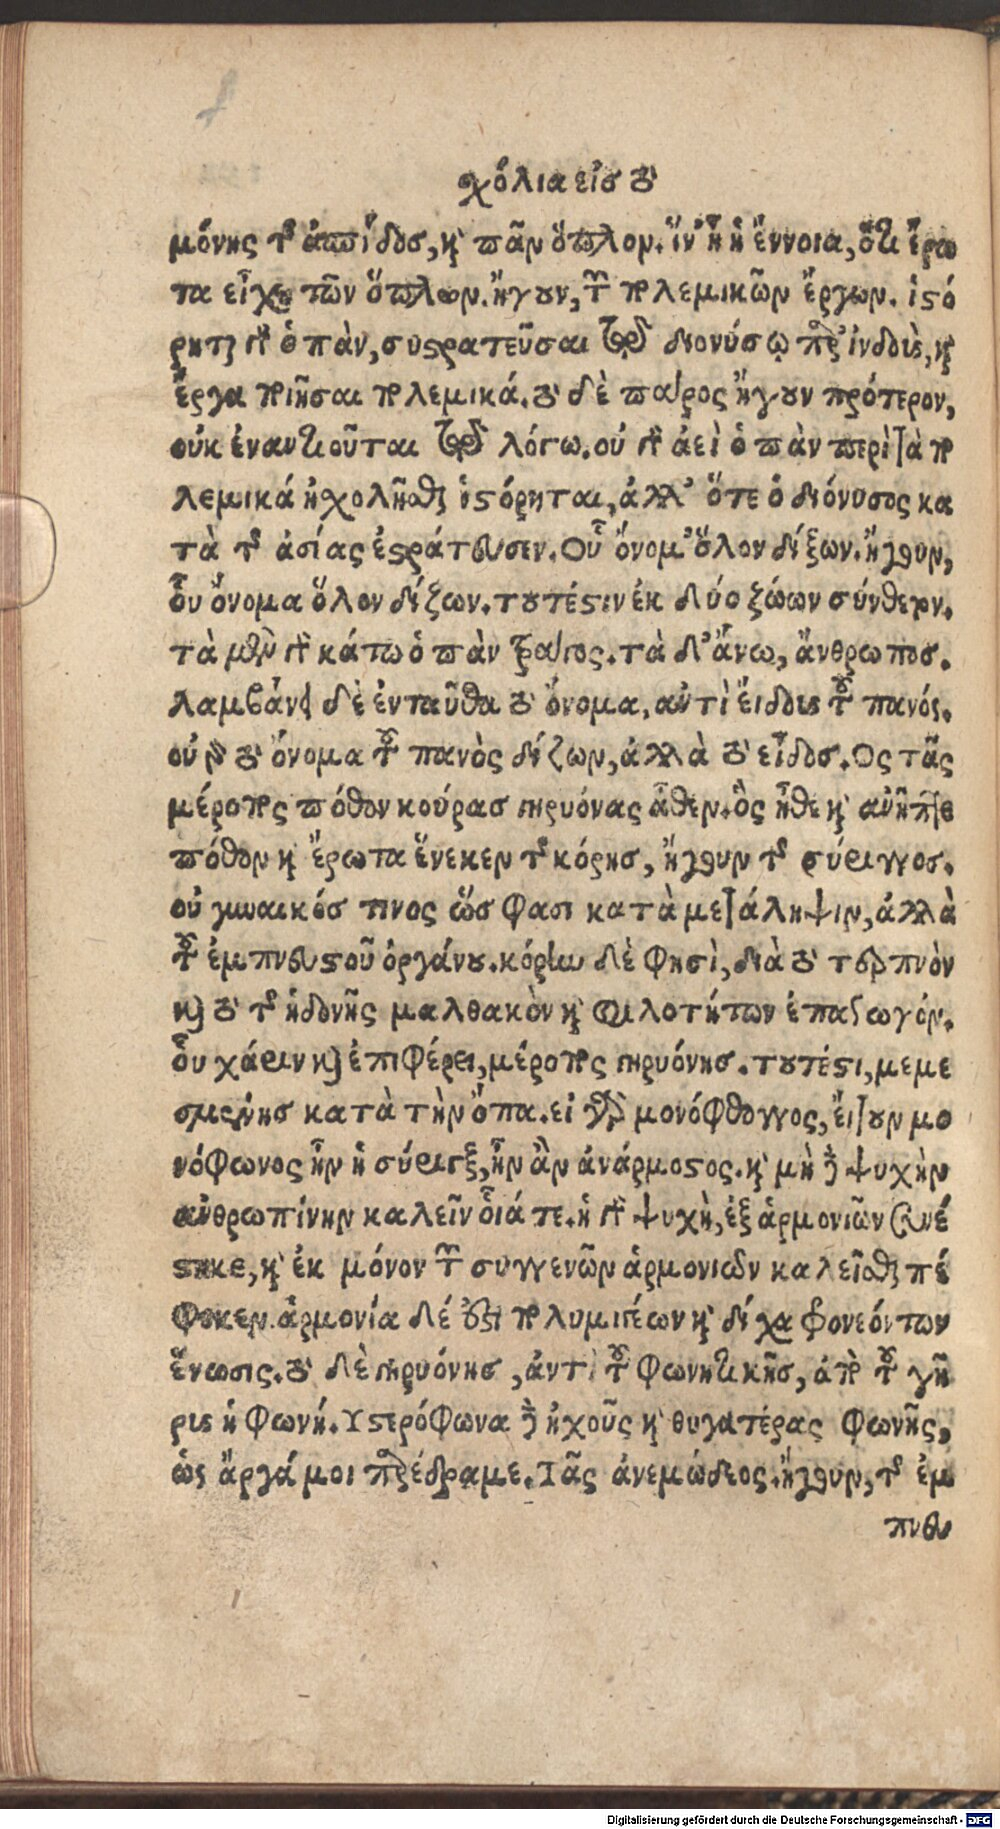 χόλια εἰσ τὸ
μόνης τῆς ἀσπίδοσ, καὶ πᾶν ὅπλον. ἵν' ἦ ἡ ἔννοια, ὅτι ἔρω
τα εἶχε τῶν ὅπλων. ἤγουν, τῶν πολεμικῶν ἔργων. ἱστό
ρηται γὰρ ὁ πὰν, συστρατεῦσαι τῷ διονύσῳ πρὸς ἰνδοὺς, καὶ
ἔργα ποιῆσαι πολεμικά. τὸ δὲ πάρος ἤγουν πρότερον,
οὐκ ἐναντιοῦται τῷ λόγω. οὐ γὰρ ἀεὶ ὁ πὰν περὶ τὰ πο
λεμικά ἠχολῆσθαι ἱστόρηται, ἀλλ' ὅτε ὁ διόνυσος κα
τὰ τῆς ἀσίας ἐστράτευσεν. Οὗ ὄνομ' ὅλον δίζων. ἤγουν,
οὗ ὄνομα ὅλον δίζων. τουτέστιν ἐκ δύο ζώων σύνθετον.
τὰ μὲν γὰρ κάτω ὁ πὰν τράγος. τὰ δ' ἄνω, ἄνθρωποσ.
λαμβάνει δὲ ἐνταῦθα τὸ ὄνομα, αντὶ ἔιδους τοῦ πανός.
οὐ γὰρ τὸ ὄνομα τοῦ πανὸς δίζων, ἀλλὰ τὸ εἶδοσ. Ος τᾶς
μέροπος πόθον κούρασ γηρυόνας ἆθεν. ὃς ἦθε καὶ
πόθον καὶ ἔρωτα ἕνεκεν τῆς κόρησ, ἤγουν τῆς σύριγγοσ.
οὐ γυναικόσ τινος ὥσ φασι κατὰ μετάληψιν, ἀλλὰ
τοῦ ἐμπνευστοῦ ὀργάνου. κόρην δὲ φησὶ, διὰ τὸ τερπνὸν
καὶ τὸ τῆς ἡδονῆς μαλθακὸν καὶ φιλοτήτων ἐπαγωγόν.
οὗ χάριν καὶ ἐπιφέρει, μέροπος γηρυόνησ. τουτέστι, μεμε
ρισμένησ κατὰ τὴν ὄπα. εἰ γὰρ μονόφθογγος, ἔιγουν μο
νόφωνος ἦν ἡ σύριγξ, ἦν ἂν ἀνάρμοστος. καὶ μὴ τὴν ψυχὴν
ανθρωπίνην καλεῖν οἷάτε. ἡ γὰρ ψυχὴ, ἐξ ἁρμονιῶν συνέ
στηκε, καὶ ἐκ μόνον τῶν συγγενῶν ἁρμονιῶν καλεῖσθαι πέ
φυκεν. ἁρμονία δέ ἐστι πολυμιγέων καὶ δίχα φρονεόντων
ἕνωσις. τὸ δὲ γηρυόνησ, ἀντὶ τοῦ φωνητικῆσ, ἀπὸ τοῦ γῆ
ρυς ἡ φωνή. Υστερόφωνα τὴν ἠχοῦς καὶ θυγατέρας φωνῆς,
ὡς ἄργά μοι προσέδραμε. Τᾶς ἀνεμώδεος. ἤγουν, τῆς ἐμ
πνευ
Digitalisierung gefördert durch die Deutsche Forschungsgemeinschaft - DFG